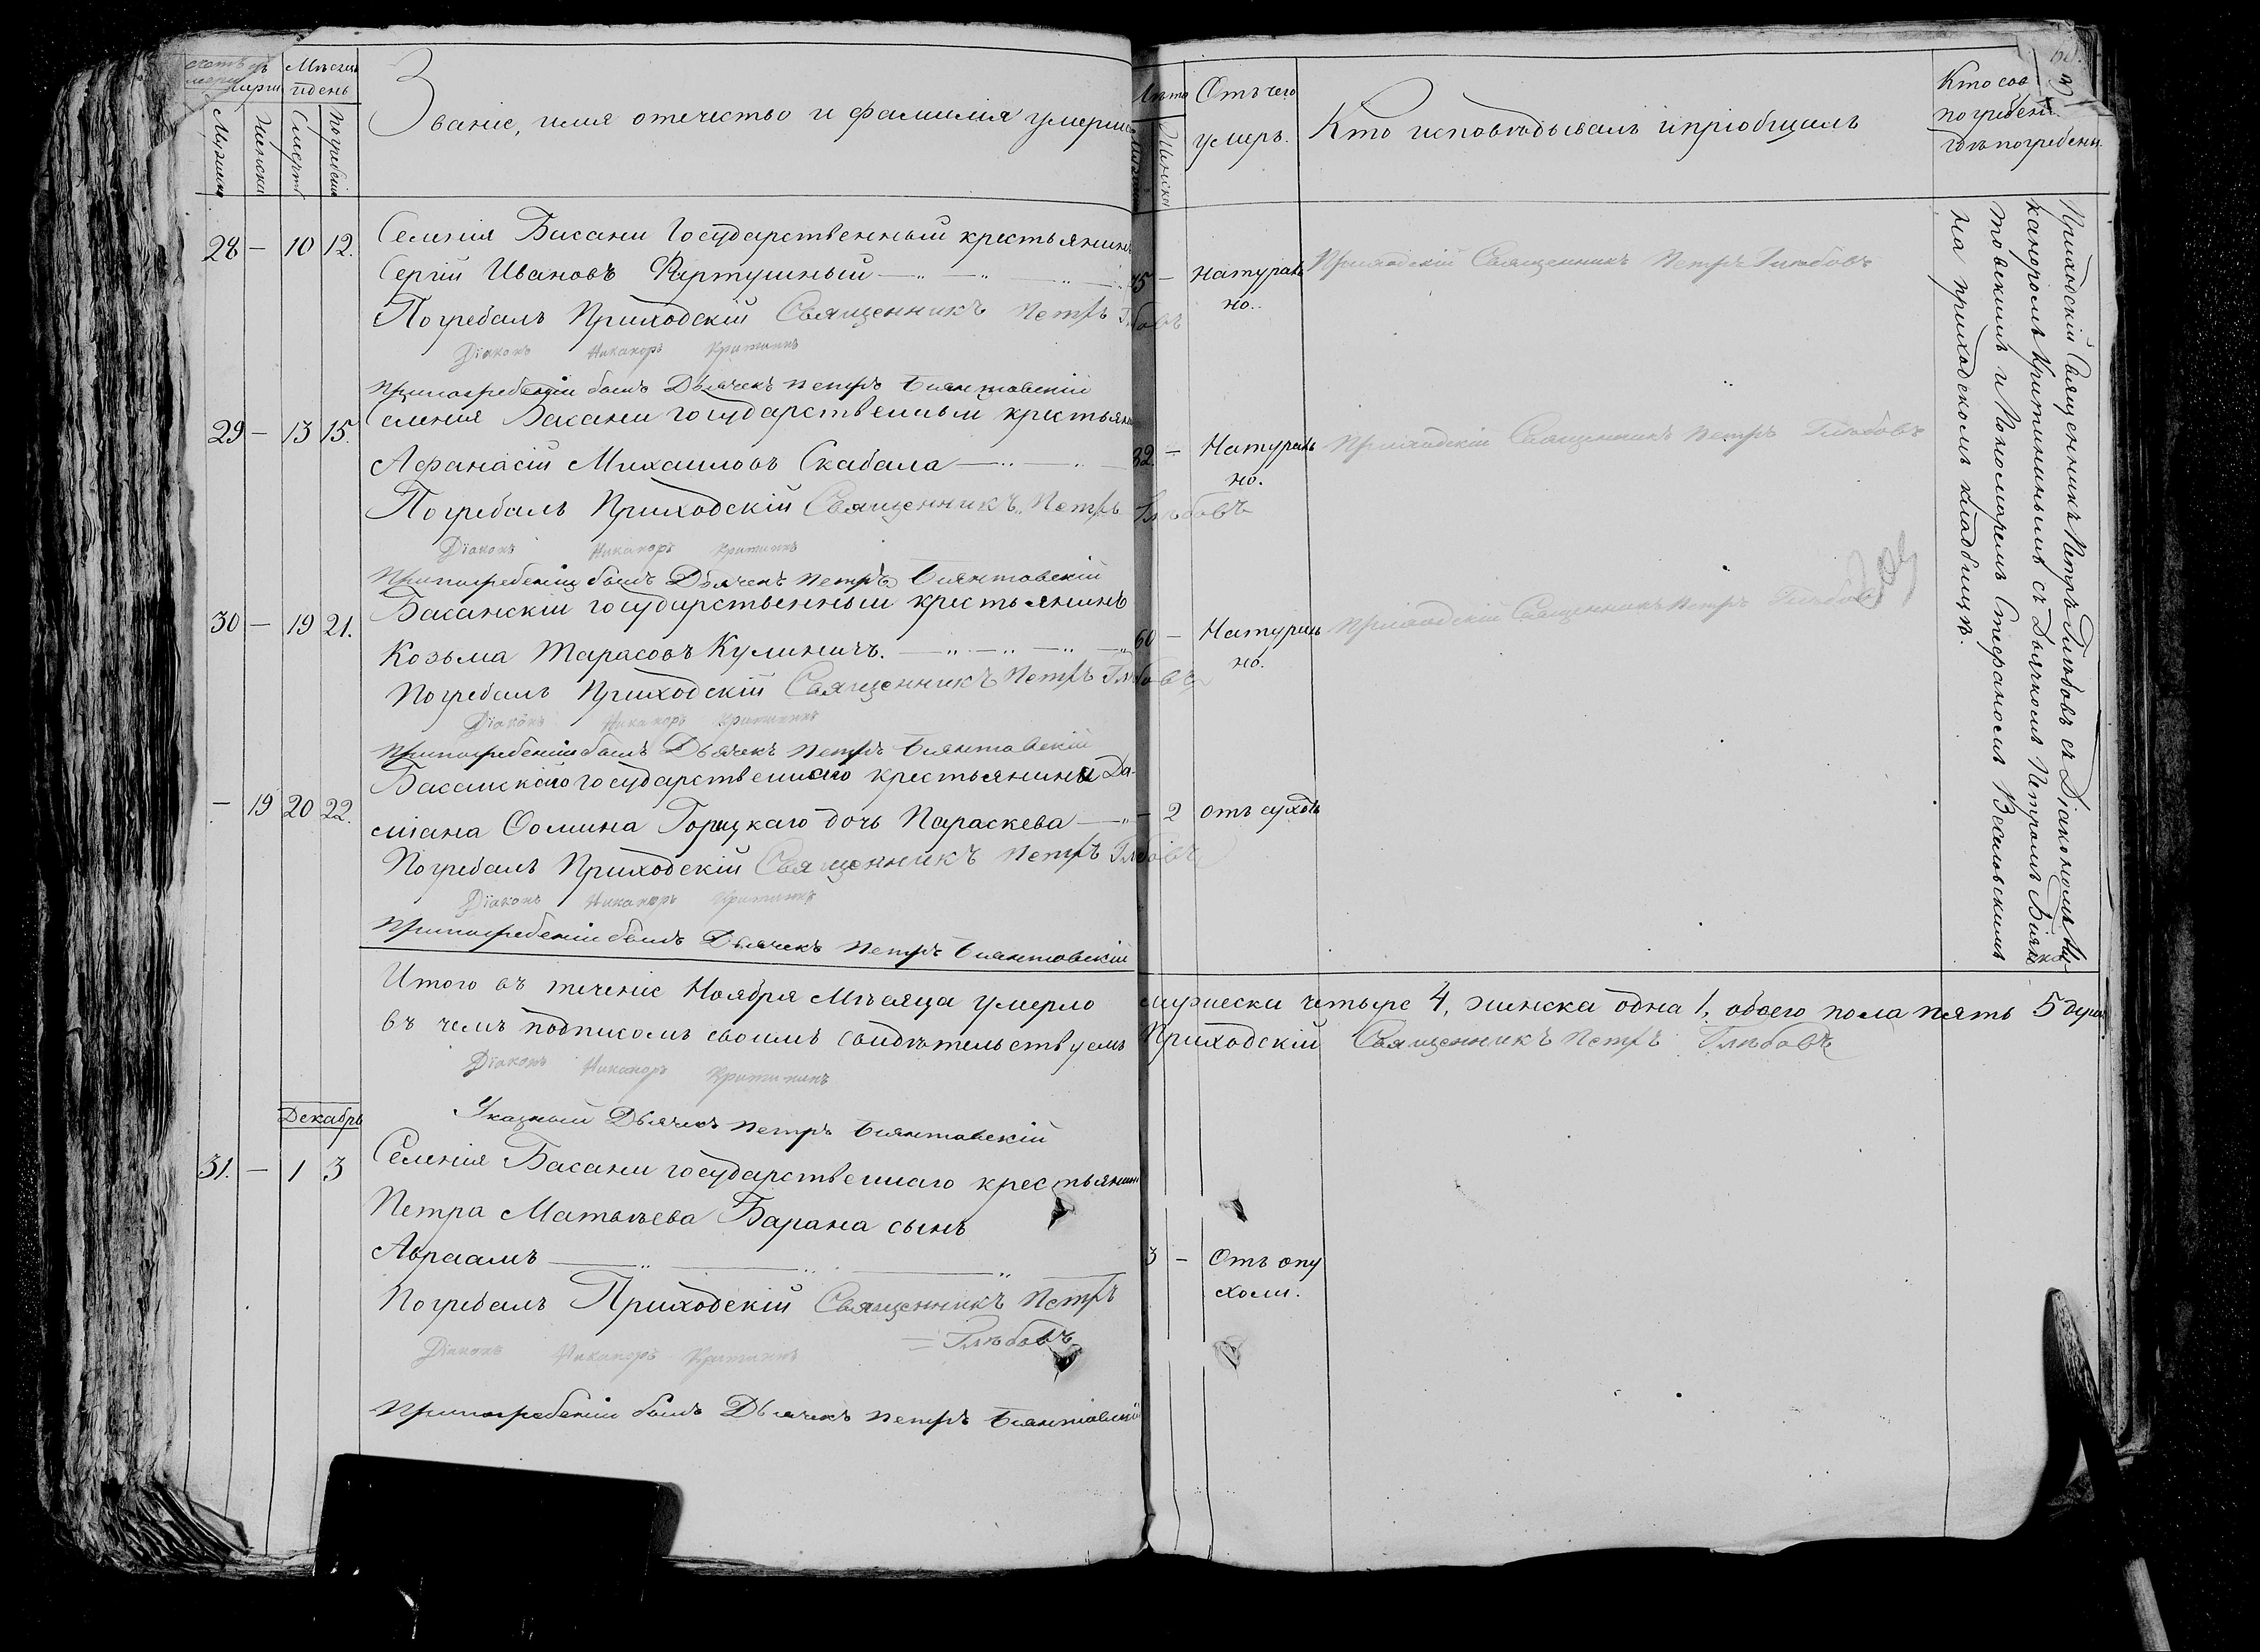 счетъ умерш
Мѣсяцъ и день
Мужеска
Женска
Смерти
Погребенія
Званіе, имя отечество и фамилія умерших
Лѣта
Мужеска
Женска
Отъ чего умеръ.
Кто исповѣдывалъ и пріобщалъ
Кто сов
погребені
гдѣ погребены
28 — 10 12.
Селенія Басани Государственный крестьянинъ
Сергій Ивановъ Фартушный
45 — Натураль
но.
Приходскій Священникъ Петръ Глѣбовъ
Погребалъ Приходскій Священникъ Петръ Глѣбовъ
Діаконъ Никаноръ Критининъ
При погребеніи былъ Дьячекъ Петръ Биянтовскій
29 — 13 15.
Селенія Басани государственный крестьянинъ
Афанасій Михаиловъ Скабала
82. — Натураль
но.
Приходскій Священникъ Петръ Глѣбовъ
Погребалъ Приходскій Священникъ Петръ Глѣбовъ
Діаконъ Никаноръ Критининъ
При погребеніи былъ Дьячекъ Петръ Биянтовскій
30 — 19 21.
Басанскій государственный крестьянинъ
Козьма Тарасовъ Кулиничъ.
60 — Натураль
но.
Приходскій Священникъ Петръ Глѣбовъ
Погребалъ Приходскій Священникъ Петръ Глѣбовъ
Діаконъ Никаноръ Критининъ
При погребеніи былъ Дьячекъ Петръ Биянтовскій
— 19 20 22.
Басанскаго государственнаго крестьянина Да-
міана Фомина Горицкаго дочь Параскева
— 2 отъ сухотъ
Погребалъ Приходскій Священникъ Петръ Глѣбовъ
Діаконъ Никаноръ Критининъ
При погребеніи былъ Дьячекъ Петръ Биянтовскій
Приходскій Священникъ Петръ Глѣбовъ съ Діакономъ Ни-
каноромъ Критининымъ съ Дьячкомъ Петромъ Біян-
товскимъ и Пономаремъ Стефаномъ Веселовскимъ
на приходскомъ кладбищѣ.
Итого въ теченіе Ноября Мѣсяца умерло мужески четыре 4, женска одна 1, обоего пола пять 5 душъ
въ чемъ подписомъ своимъ свидѣтельствуемъ Приходскій Священникъ Петръ Глѣбовъ
Діаконъ Никаноръ Критининъ
Указный Дьячекъ Петръ Биянтовскій
Декабрь
31. — 1 3
Селенія Басани государственнаго крестьянина
Петра Матвѣева Барана сынъ
Авраамъ
3 — Отъ опу
холи.
Погребалъ Приходскій Священникъ Петръ
Глѣбовъ
Діаконъ Никаноръ Критининъ
При погребеніи былъ Дьячекъ Петръ Биянтовскій